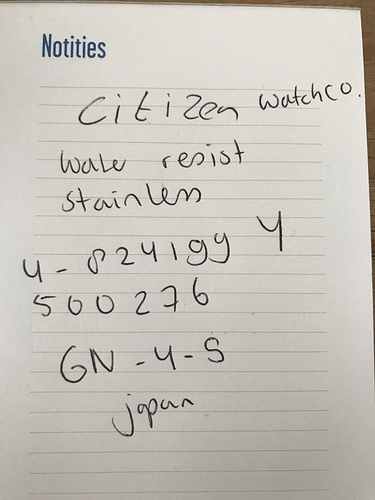 Notities
Citizen watchco.
wate resist
stainless
4-824199 Y
500276
GN-4-S
japan